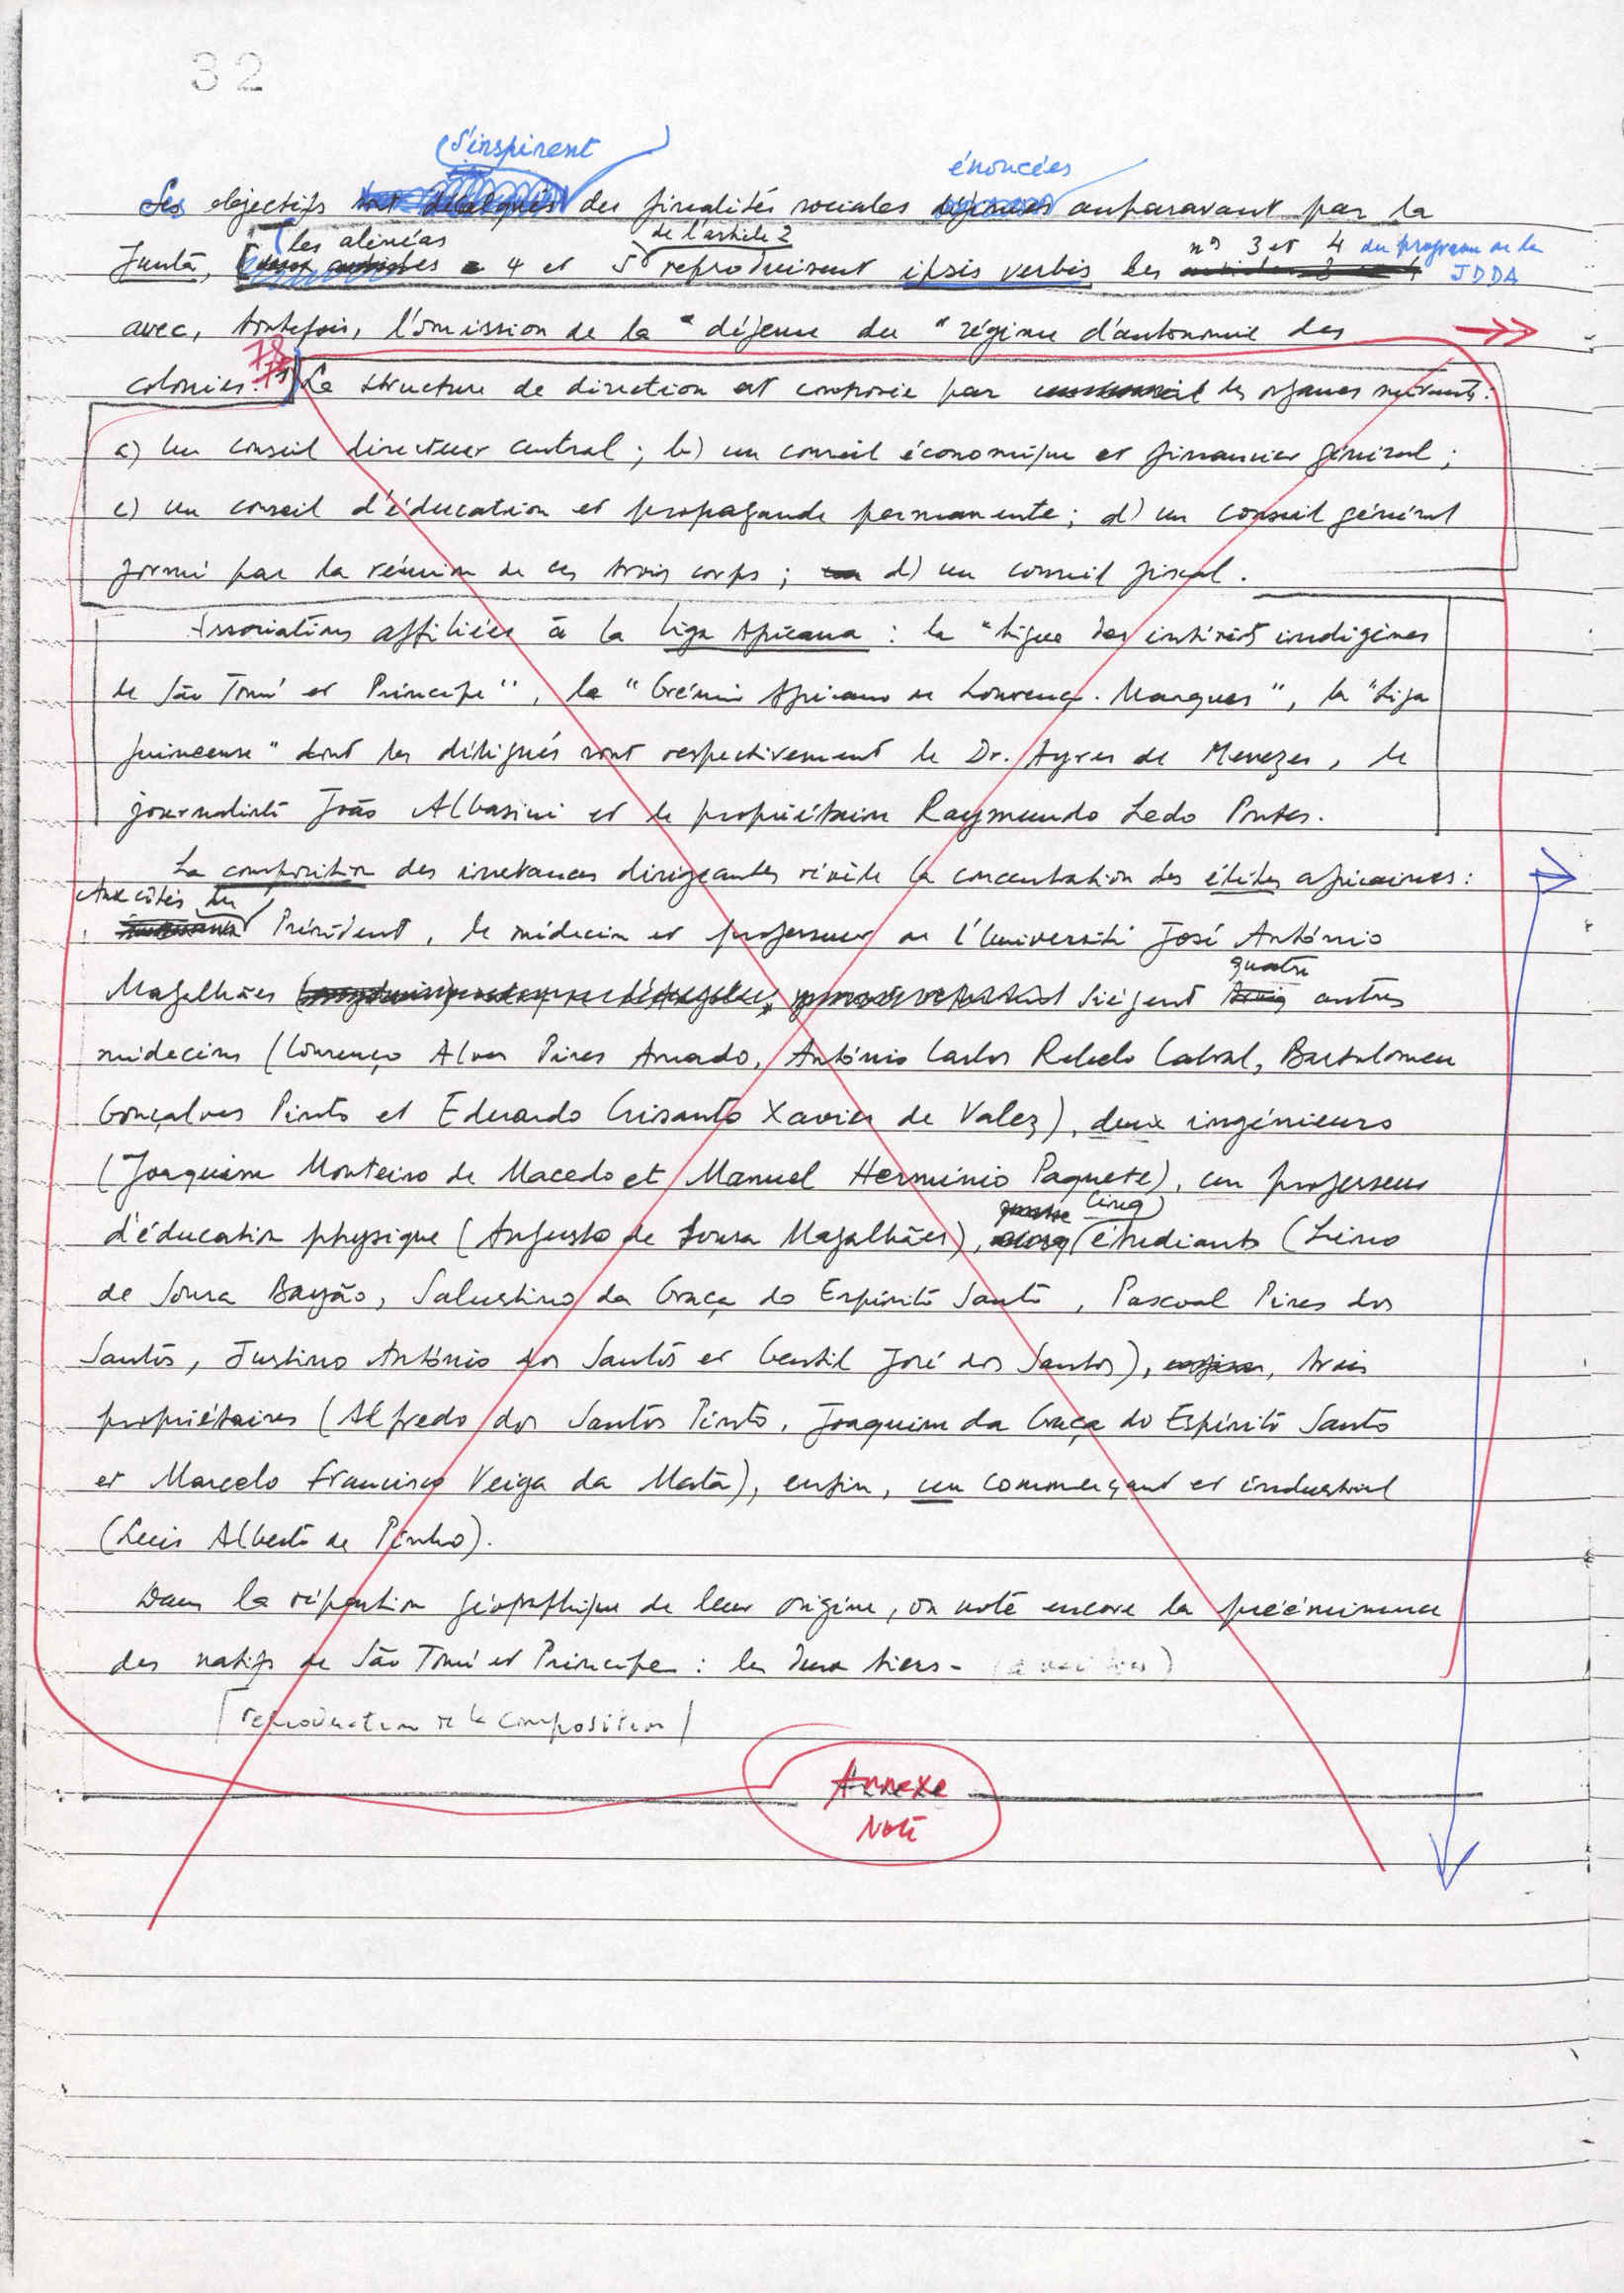 32
s'inspirent
énoncées
Ses objectifs des finalités sociales auparavant par la
les alinéas de l'article 2 nos 3 et 4 du programme de la JDDA
Junta, 4 et 5 reproduisent ipsis verbis les
avec, toutefois, l'omission de la "défense du "régime d'autonomie des
colonies. 78 La structure de direction est composée par les organes suivants :
a) un conseil directeur central ; b) un conseil économique et financier général ;
c) un conseil d'éducation et propagande permanente ; d) un conseil général
formé par la réunion de ces trois corps ; d) un conseil fiscal.
Associations affiliées à la Liga Africana : la "Ligue des intérêts indigènes
de São Tomé et Príncipe", le "Grémio Africano de Lourenço Marques", la "Liga
guineense" dont les délégués sont respectivement le Dr. Ayres de Menezes, le
journaliste João Albasini et le propriétaire Raymundo Ledo Pontes.
La composition des instances dirigeantes révèle la concentration des élites africaines :
Aux côtés du
Président, le médecin et professeur de l'Université José António
quatre
Magalhães siégent trois autres
médecins (Lourenço Alves Pires Amado, António Carlos Rebelo Cabral, Bartolomeu
Gonçalves Pinto et Eduardo Crisanto Xavier de Valez), deux ingénieurs
(Joaquim Monteiro de Macedo et Manuel Hermínio Paquete), un professeur
quatre cinq
d'éducation physique (Augusto de Sousa Magalhães), étudiants (Lino
de Sousa Bayão, Salustino da Graça do Espírito Santo, Pascoal Pires dos
Santos, Justino António dos Santos et Gentil José dos Santos), enfin, trois
propriétaires (Alfredo dos Santos Pinto, Joaquim da Graça do Espírito Santo
et Marcelo Francisco Veiga da Mata), enfin, un commerçant et industriel
(Luis Alberto de Pinho).
Dans la répartition géographique de leur origine, on note encore la prééminence
des natifs de São Tomé et Príncipe : les deux tiers-
[reproduction de la composition]
Annexe
Note